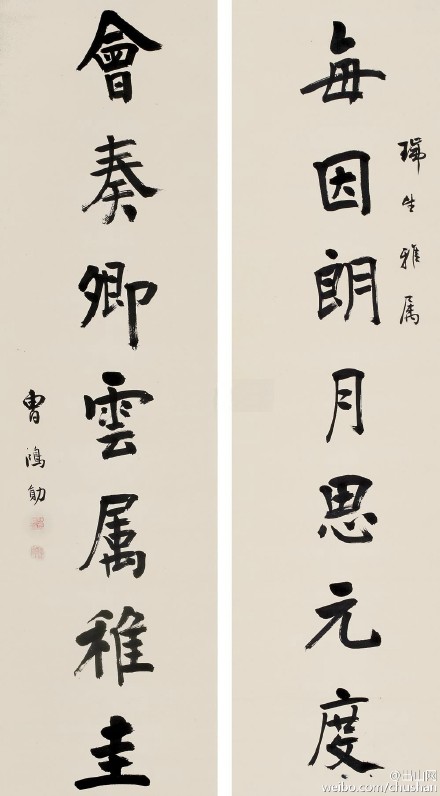 瑞生雅属
每因朗月思元度
會奏卿雲属稚圭
曹鴻勛
@出山网
weibo.com/chushan